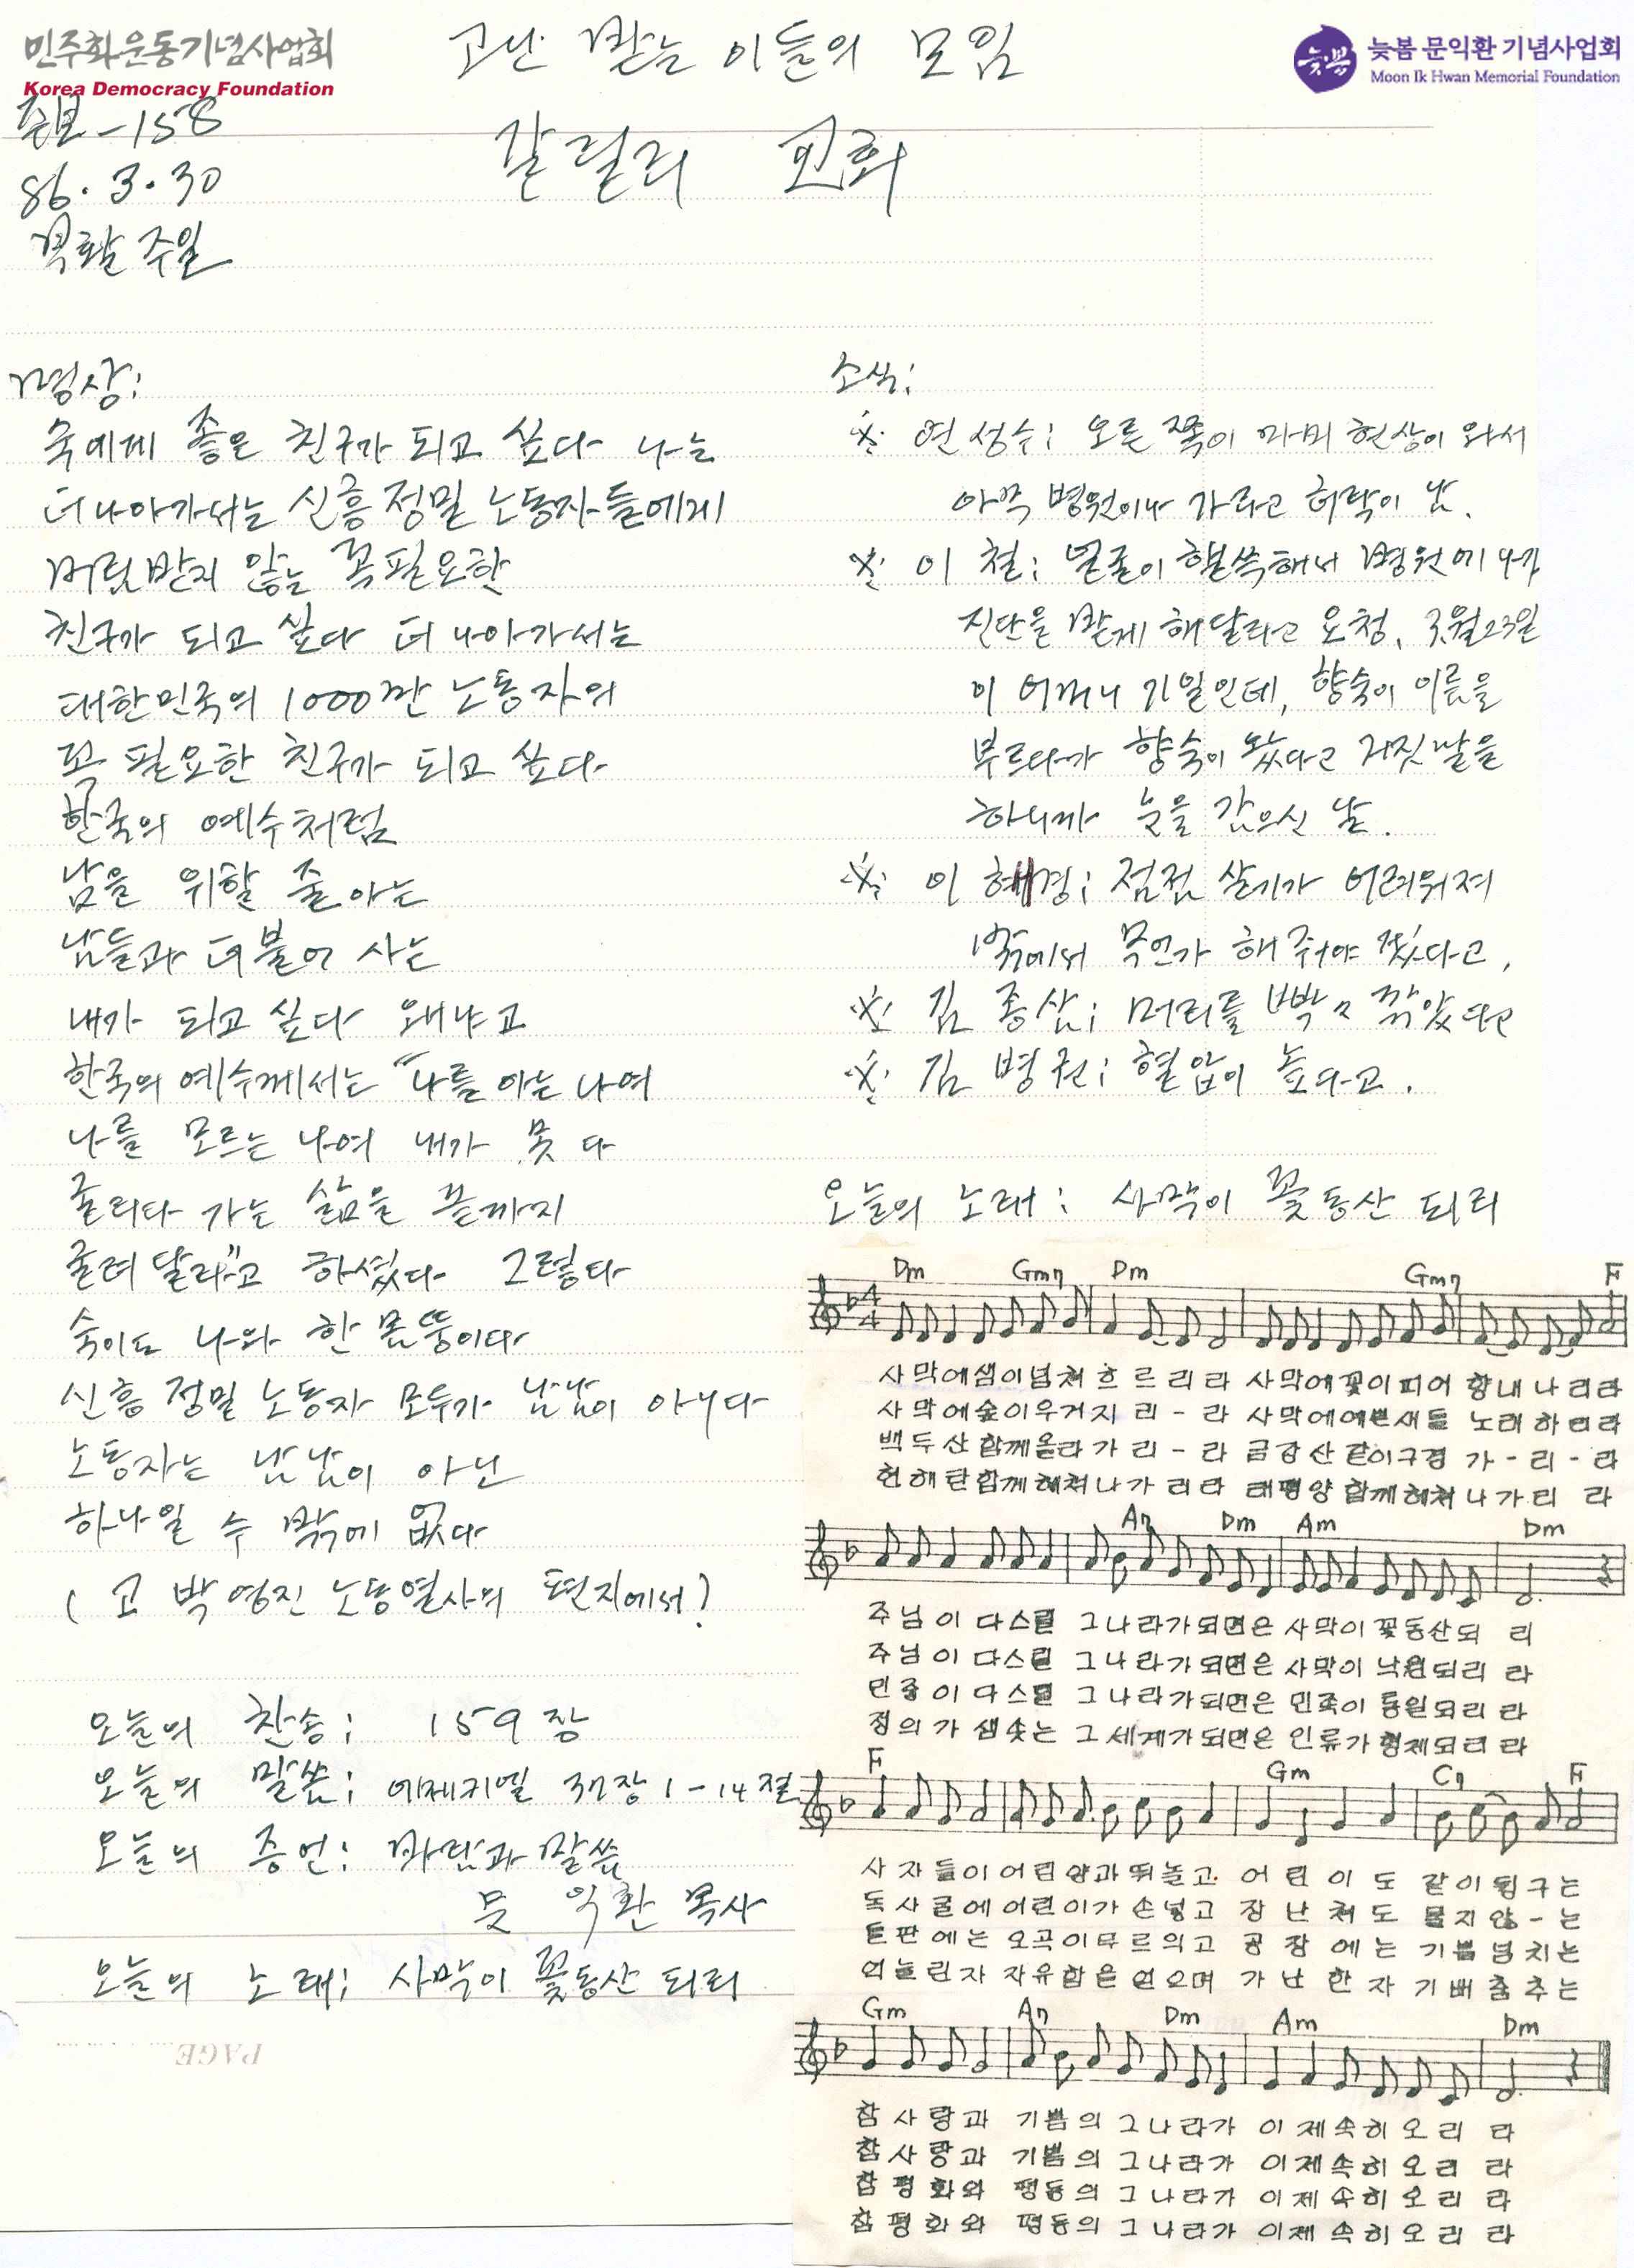 민주화운동기념사업회
Korea Democracy Foundation
늦봄
늦봄 문익환 기념사업회
Moon Ik Hwan Memorial Foundation
고난 받는 이들의 모임
갈릴리 교회
주보-158
86.3.30
부활주일
명상:
숙에게 좋은 친구가 되고 싶다 나는
더나아가서는 신흥정밀 노동자들에게
버림받지 않는 꼭필요한
친구가 되고 싶다 더 나아가서는
대한민국의 1000만 노동자의
꼭 필요한 친구가 되고 싶다
한국의 예수처럼
남을 위할 줄 아는
남들과 더불어 사는
내가 되고 싶다 왜냐고
한국의 예수께서는 "나를 아는 나여
나를 모르는 나여 내가 못 다
굴리다 가는 삶을 끝까지
굴려 달라"고 하셨다 그렇다
숙이도 나와 한 몸뚱이다
신흥 정밀 노동자 모두가 남남이 아니다
노동자는 남남이 아닌
하나일 수 밖에 없다
(고 박영진 노동열사의 편지에서)
오늘의 찬송: 159장
오늘의 말씀: 에제키엘 37장 1-14절
오늘의 증언: 바람과 말씀
문 익환 목사
오늘의 노래: 사막이 꽃동산 되리
PAGE
소식:
※ 연성수: 오른 쪽이 마비 현상이 와서
아무 병원이나 가라고 허락이 남.
※ 이 철: 얼굴이 핼쑥해서 병원에 나가
진단을 받게 해달라고 요청. 3월23일
이 어머니 기일인데, 향숙이 이름을
부르다가 향숙이 왔다고 거짓말을
하니까 눈을 감으신 날.
※ 이 혜경: 점점 살기가 어려워져
밖에서 무언가 해 주어야 겠다고.
※ 김 종삼: 머리를 빡빡 깎았다고
※ 김 병권: 혈압이 높다고.
오늘의 노래: 사막이 꽃동산 되리
Dm Gm7 Dm Gm7 F
4/4
사막에샘이넘쳐 흐르리라 사막에꽃이피어 향내나리라
사막에숲이우거지리-라 사막에예쁜새들 노래하리라
백두산함께올라가리-라 금강산같이구경 가-리-라
현해탄함께헤쳐나가리라 태평양함께헤쳐나가리 라
A7 Dm Am Dm
주님이다스릴 그나라가되면은 사막이꽃동산되 리
주님이다스릴 그나라가되면은 사막이낙원되리 라
민중이다스릴 그나라가되면은 민족이통일되리 라
정의가샘솟는 그세계가되면은 인류가형제되리 라
F Gm C7 F
사자들이어린양과뛰놀고 어린이도 같이뒹구는
독사굴에어린이가손넣고 장난쳐도 물지않-는
들판에는오곡이무르익고 공장에는 기쁨넘치는
억눌린자자유함을얻으며 가난한자 기뻐춤추는
Gm A7 Dm Am Dm
참사랑과 기쁨의그나라가 이제속히오리 라
참사랑과 기쁨의그나라가 이제속히오리 라
참평화와 평등의그나라가 이제속히오리 라
참평화와 평등의그나라가 이제속히오리 라